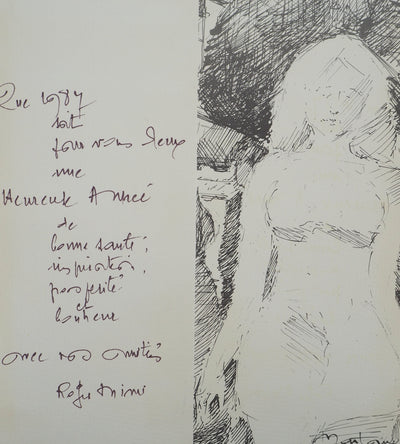 Que 1987
soit
pour vous deux
une
Heureuse Année
de
bonne santé,
inspiration,
prospérité
et
bonheur
avec nos amitiés